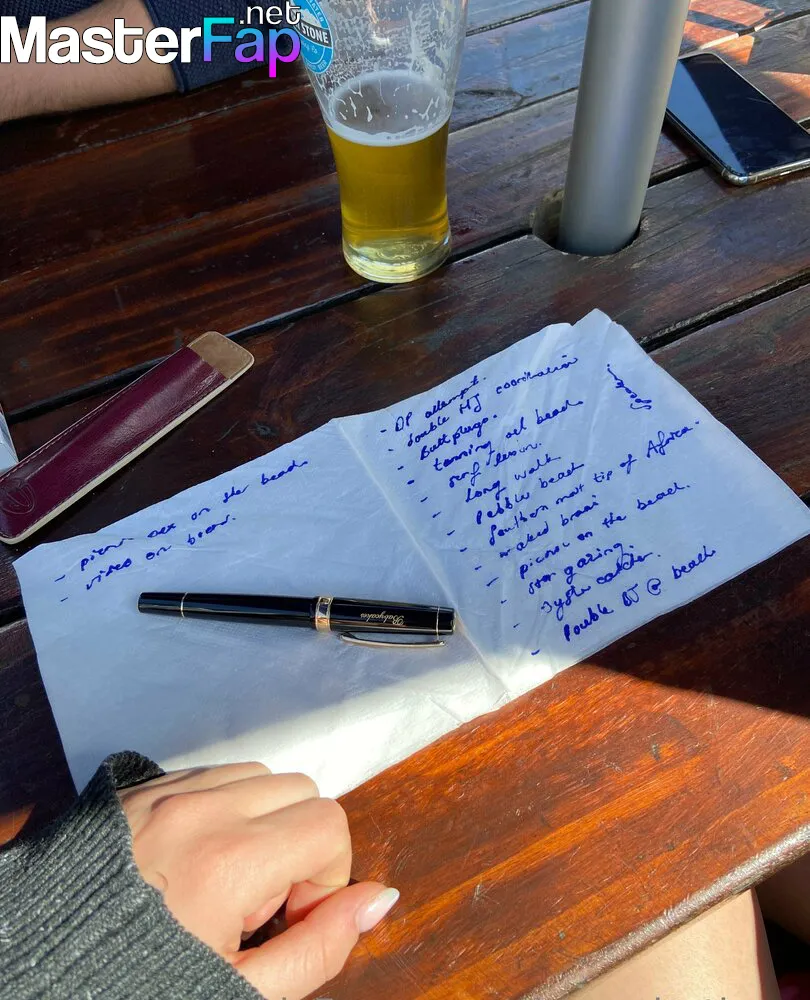 .net
MasterFap
STONE
- picnic sex on the beach
- video on beach.
- DP attempt.
- double HJ coordination
- Buttplugs.
- tanning oil beach
- surf lesson.
- Long walk
- Pebble beach
- Southern most tip of Africa.
- naked braai
- picnic on the beach.
- star gazing.
- oyster catcher.
- Double BJ @ beach
Babycakes